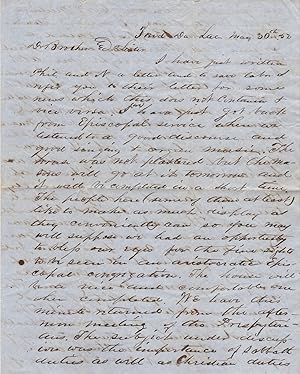 Fond Du Lac May 30th 52
Dr Brother Ed & Sister
I have just written
Phil and N a letter and to save labor I
refer you to their letter for some
news which this does not contain &
vice versa. I have just got back
from Episcopal service where we
listened to a good discourse and
good singing & organ music. The
house was not plastered but the ma
sons will go at it tomorrow and
it will be completed in a short time
The people here (some of them at least)
like to make as much display as
they conveniently can so you may
well suppose we had an opportunity
to bless our eyes for the fine sights
to be seen in an aristocratic Epis
copal congregation. The house will
be a nice and comfortable one
when completed. We have this
minute returned from the after
noon meeting of the Presbyter
ians. The subject under discus
sion was the importance of sabbath
duties as well as Christian duties